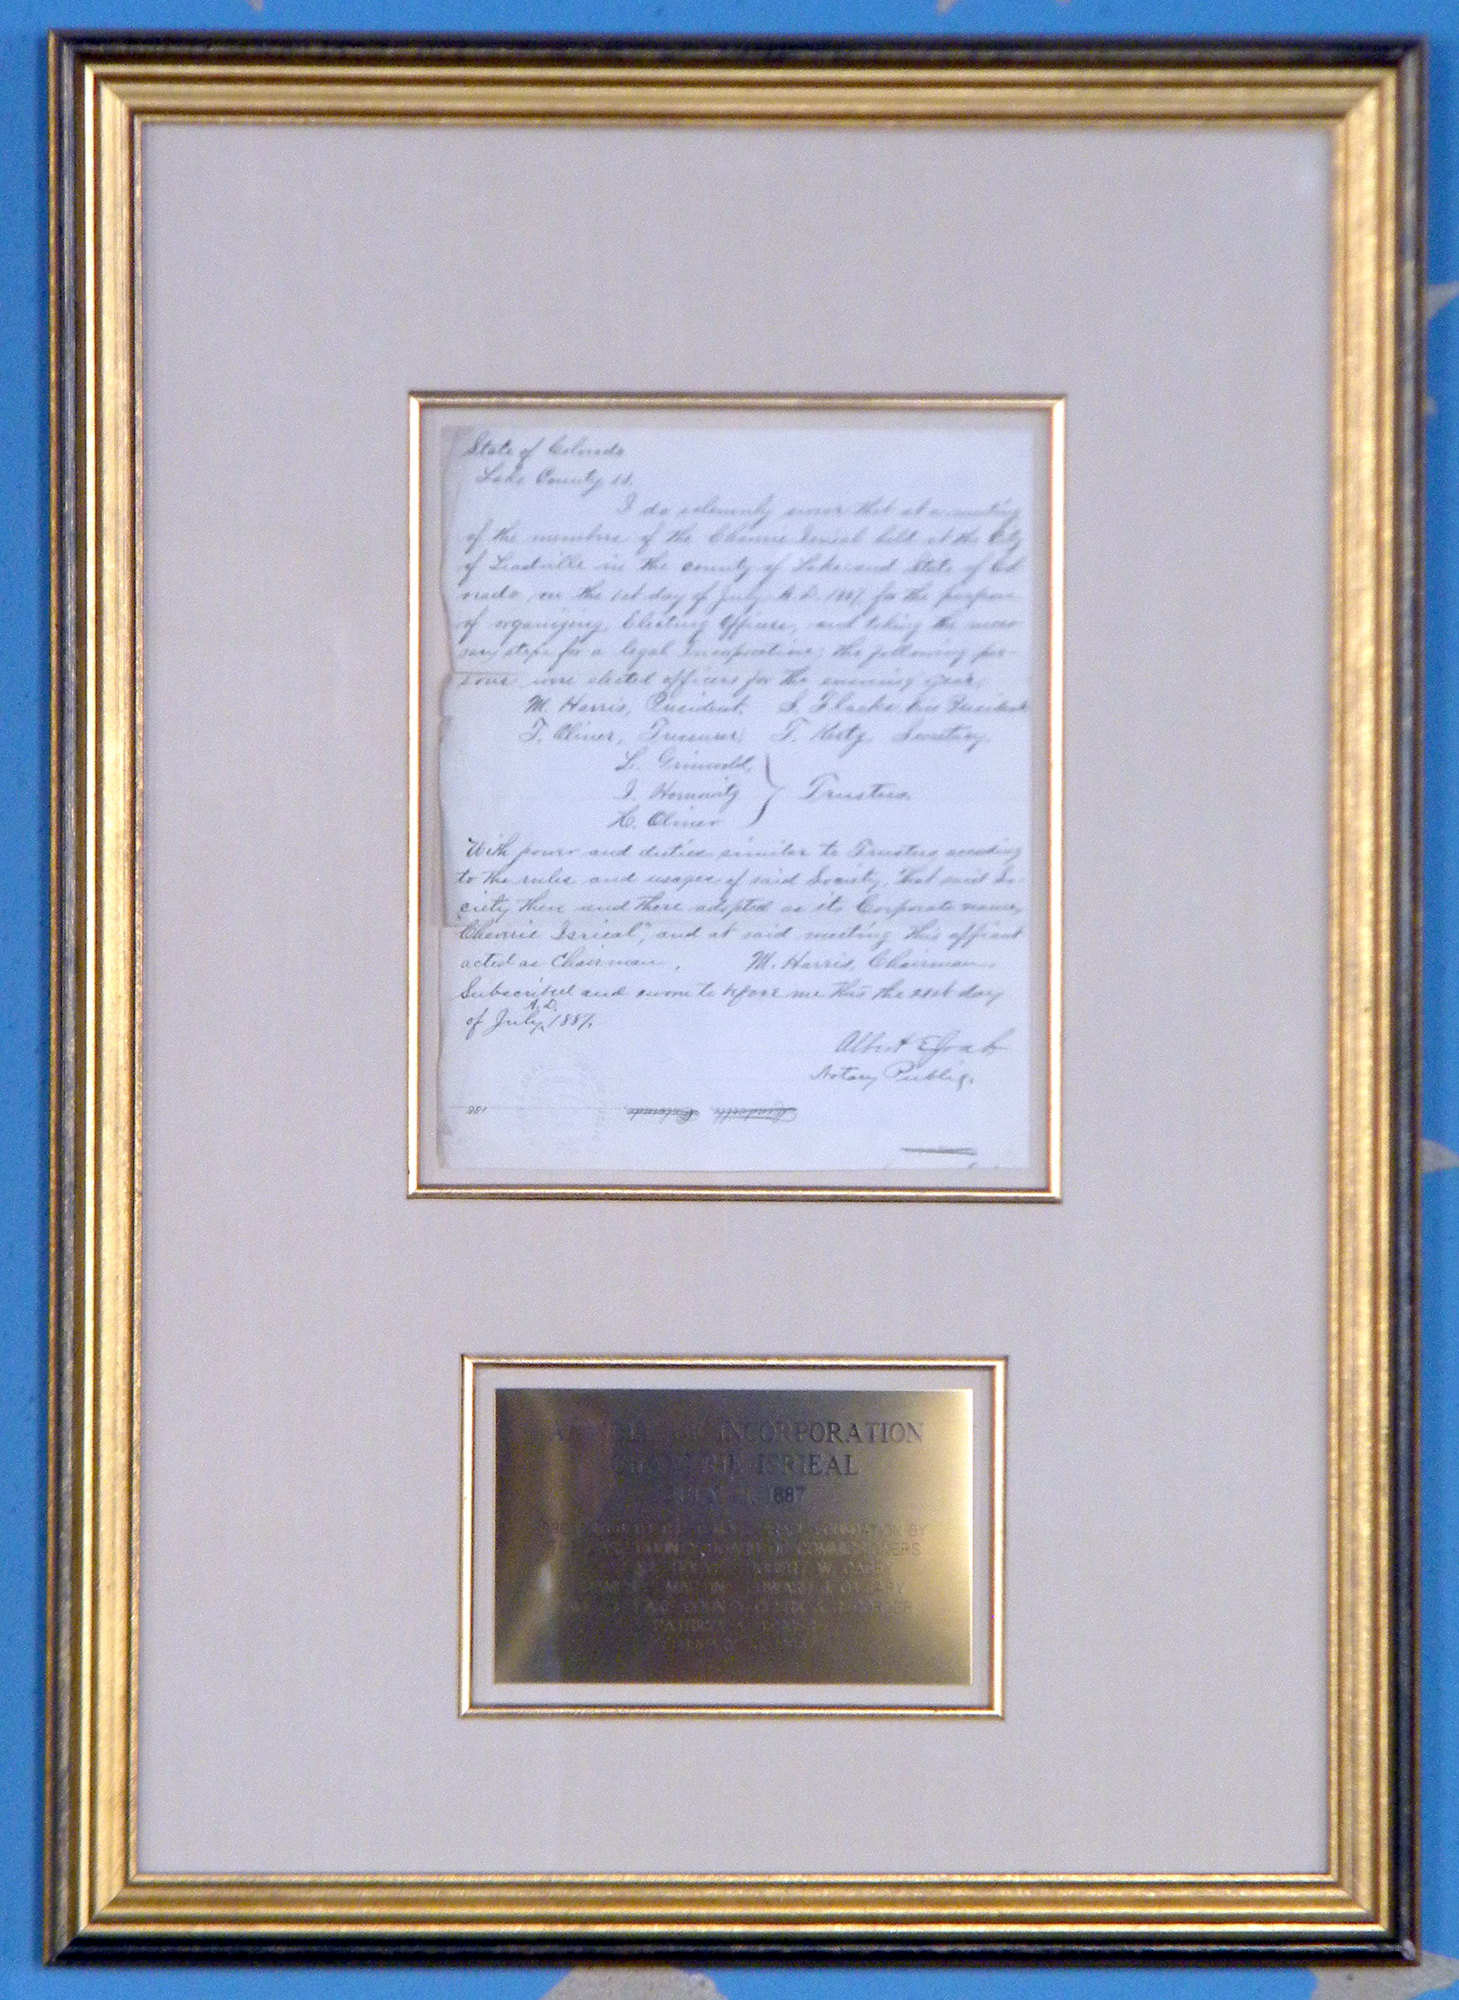 State of Colorado
Lake County ss.
I do solemnly swear that at a meeting
of the members of the Chevrie Isrieal held at the City
of Leadville in the county of Lake and State of Col
orado on the 1st day of July A.D. 1887, for the purpose
of organizing, Electing Officers, and taking the neces-
sary steps for a legal Incorporation; the following per-
sons were elected officers for the ensuing year,
M. Harris, President. S. Flacks Vice President
T. Oliner, Treasurer, Secretary
Grinwald,
I. Horowitz } Trustees,
H. Oliner
With power and duties similar to Trustees according
to the rules and usages of said Society, That said So-
ciety then and there adopted as its Corporate name,
Chevrie Isrieal", and at said meeting this affiant
acted as Chairman. M. Harris, Chairman.
Subscribed and sworn to before me this the 21st day
of July, A.D. 1887,
Albert
Notary Public.
188
ARTICLE OF INCORPORATION
CHEVRIE ISRIEAL
JULY 1887
FOUNDATION BY
COUNTY BOARD OF COMMISSIONERS
ROBERT W. CASEY
JAMES MARTIN EDWARD J. O'LEARY
LAKE COUNTY CLERK & RECORDER
PATRICIA